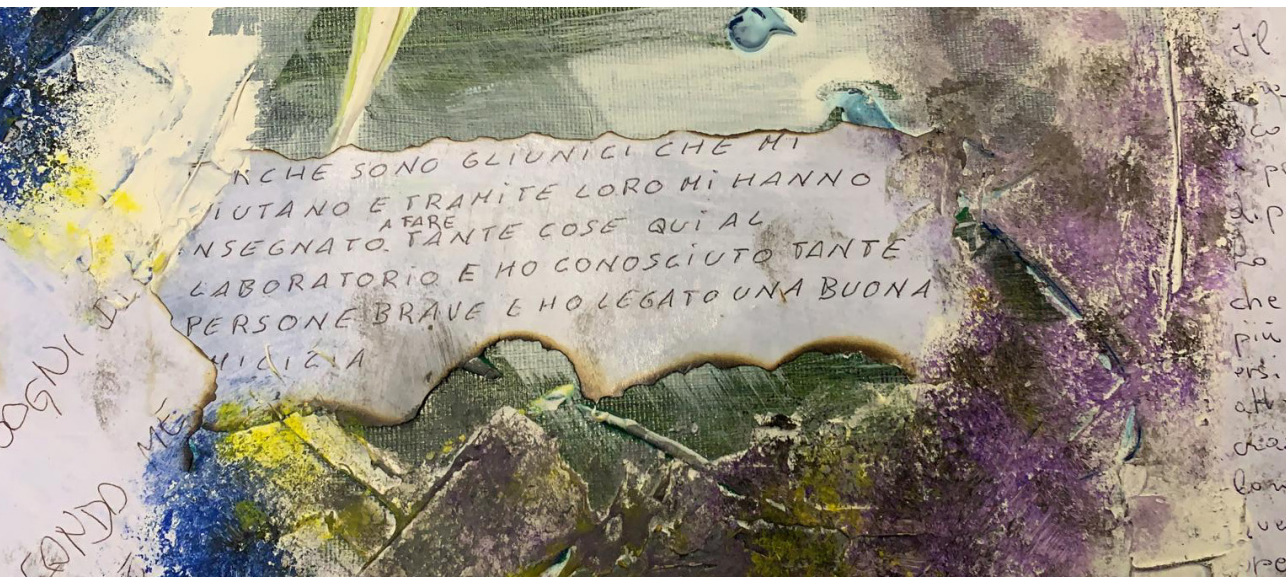 RCHE SONO GLIUNICI CHE MI
IUTANO E TRAMITE LORO MI HANNO
A FARE
NSEGNATO TANTE COSE QUI AL
LABORATORIO E HO CONOSCIUTO TANTE
PERSONE BRAVE E HO LEGATO UNA BUONA
MICIZIA
OGNI
ME
ONDO
Il
di p
che
più